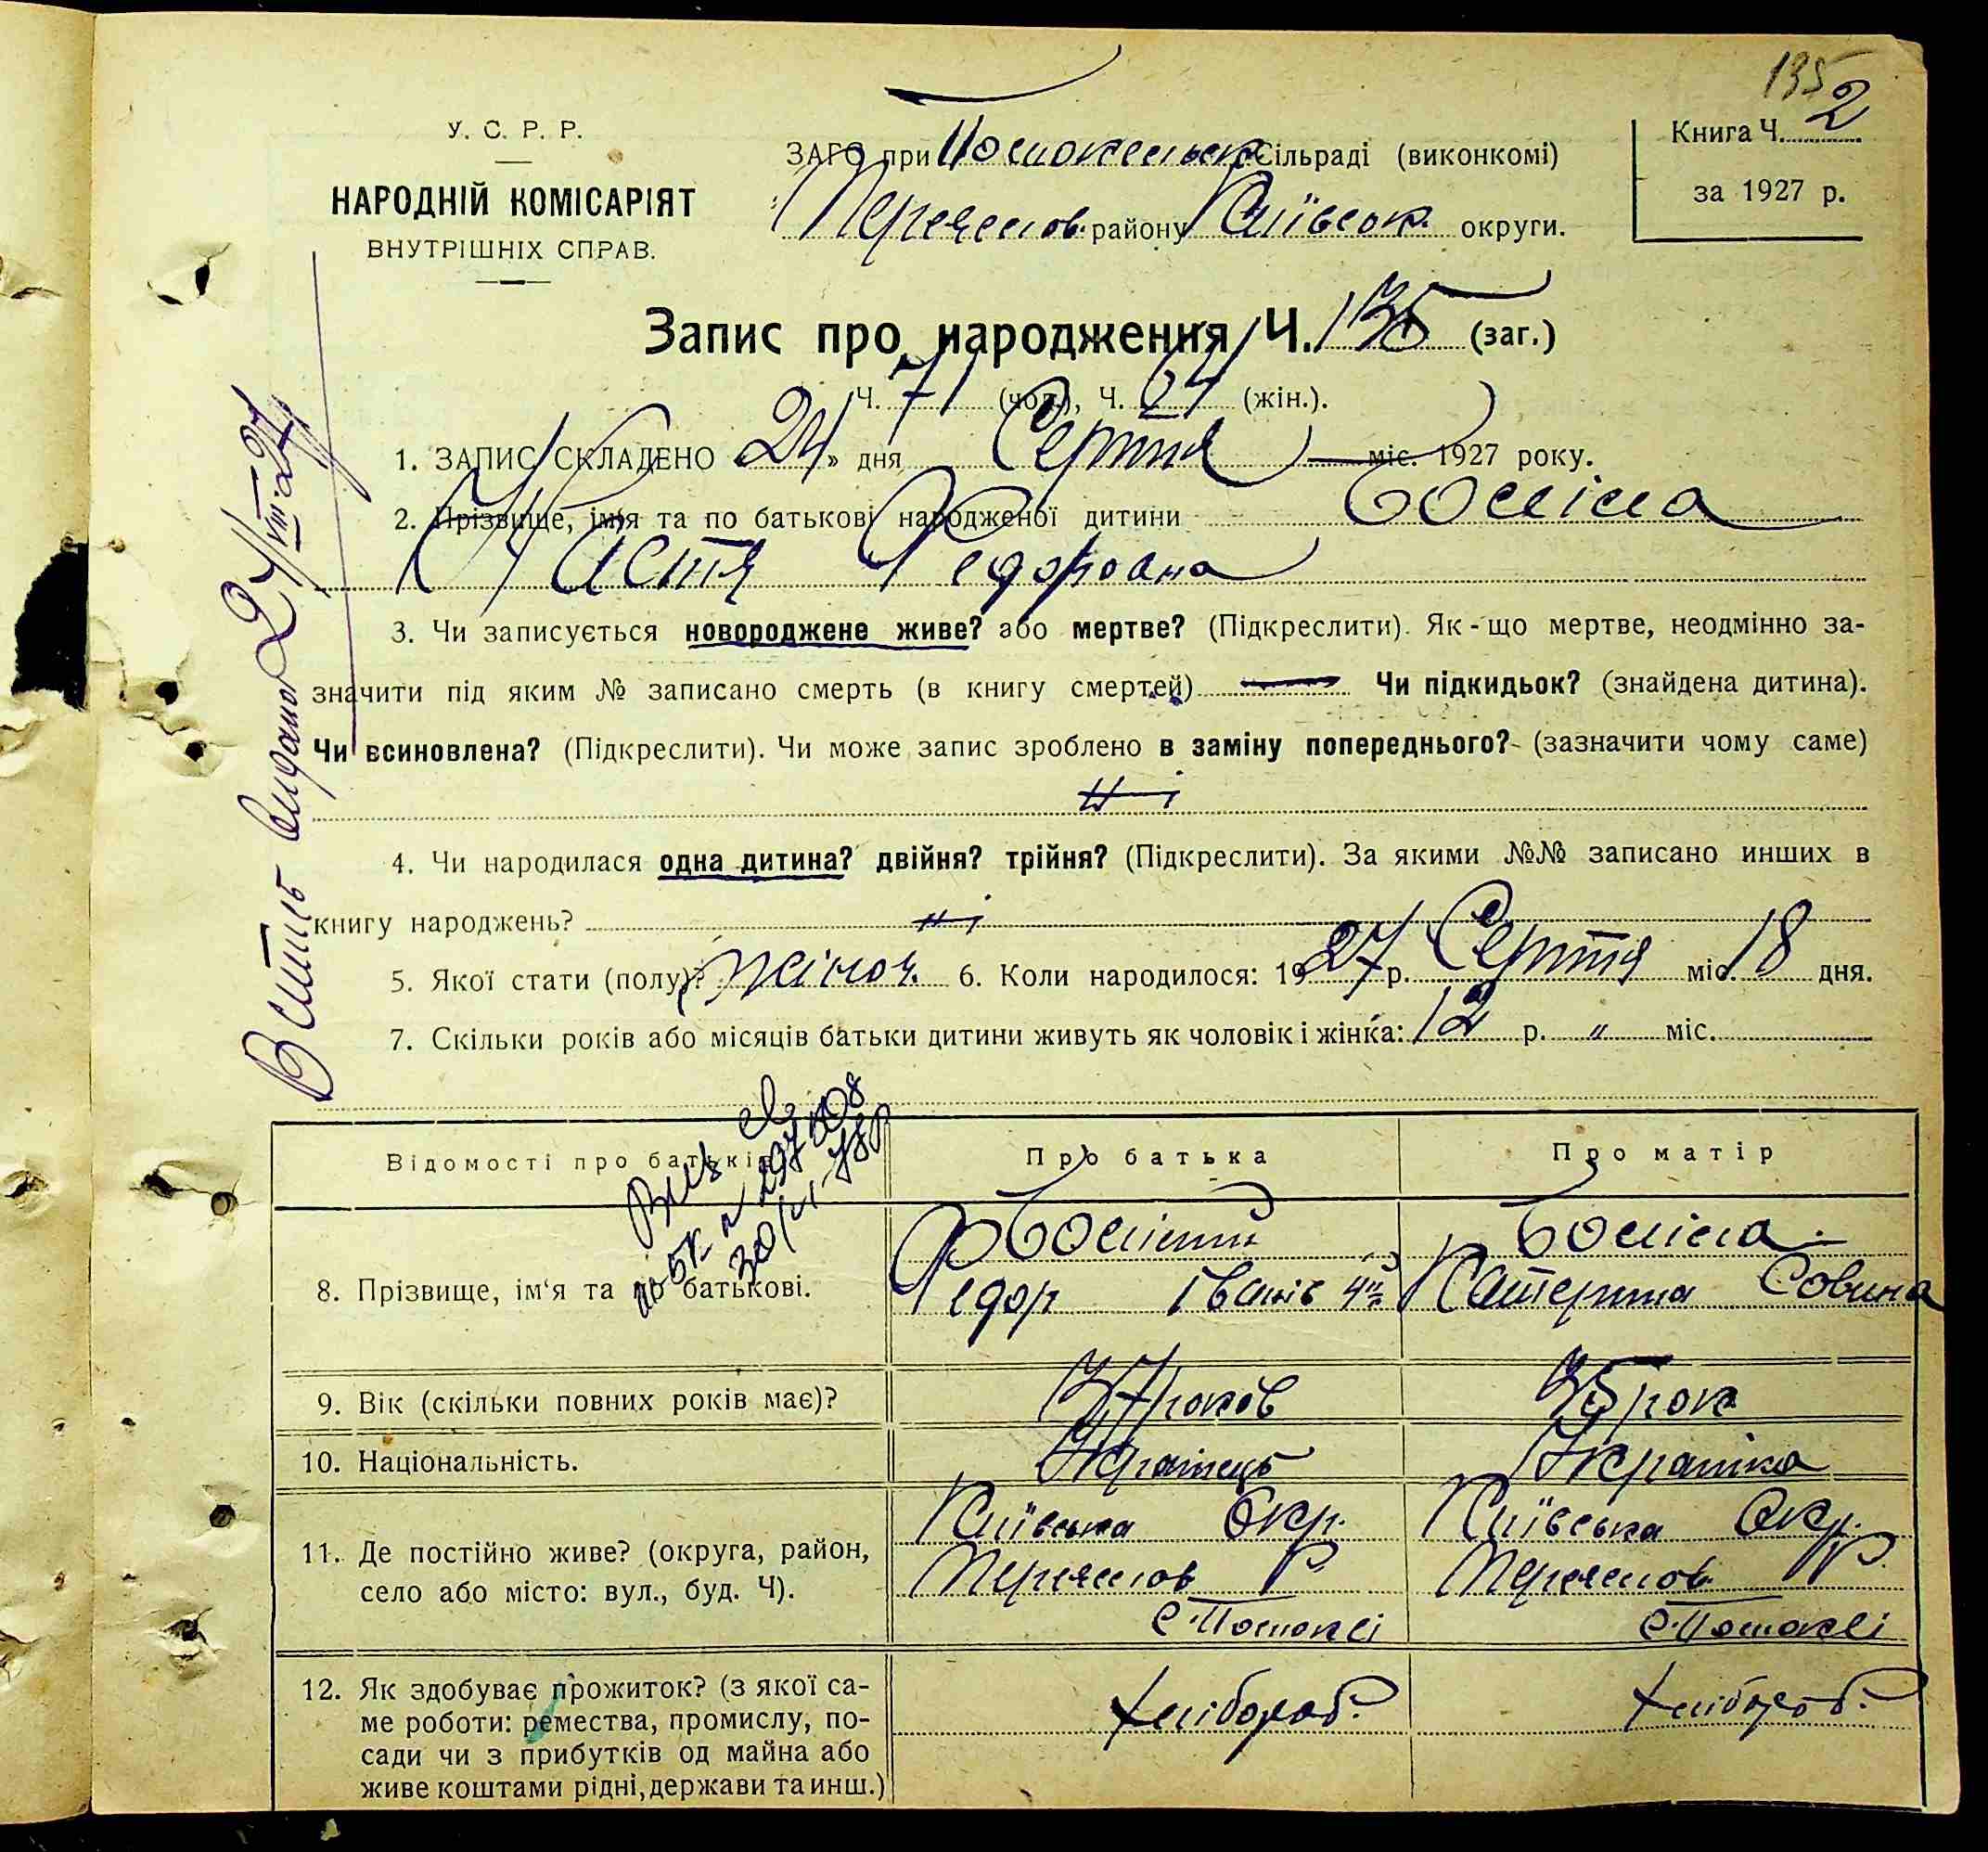 135
У. С. Р. Р.
НАРОДНІЙ КОМІСАРІЯТ
ВНУТРІШНІХ СПРАВ.
ЗАГС при Помокельск Сільраді (виконкомі)
Переяслов. району Київськ. округи.
Книга Ч. 2
за 1927 р.
Запис про народження Ч. 135 (заг.)
Ч. 71 (чол.), Ч. 64 (жін.).
1. ЗАПИС СКЛАДЕНО «24» дня Серпня міс. 1927 року.
2. Прізвище, ім'я та по батькові народженої дитини
Настя Федоровна
3. Чи записується новороджене живе? або мертве? (Підкреслити). Як-що мертве, неодмінно за-
значити під яким № записано смерть (в книгу смертей) Чи підкидьок? (знайдена дитина).
Чи всиновлена? (Підкреслити). Чи може запис зроблено в заміну попереднього? (зазначити чому саме)
ні
4. Чи народилася одна дитина? двійня? трійня? (Підкреслити). За якими №№ записано инших в
книгу народжень? ні
5. Якої стати (полу)? жіноч. 6. Коли народилося: 1927 р. Серпня міс. 18 дня.
7. Скільки років або місяців батьки дитини живуть як чоловік і жінка: 12 р. " міс.
Витяг видано 24/VIII-27
Відомості про батьків
Про батька
Про матір
8. Прізвище, ім'я та по батькові.
Федор Іванів
Катерина
9. Вік (скільки повних років має)?
37 років
35 рок
10. Національність.
Українець
Українка
11. Де постійно живе? (округа, район,
село або місто: вул., буд. Ч).
Київська Окр.
Переяслов Р.
Київська Окр.
Переяслов. Р.
12. Як здобуває прожиток? (з якої са-
ме роботи: ремества, промислу, по-
сади чи з прибутків од майна або
живе коштами рідні, держави та инш.)
хлібороб.
хлібороб.